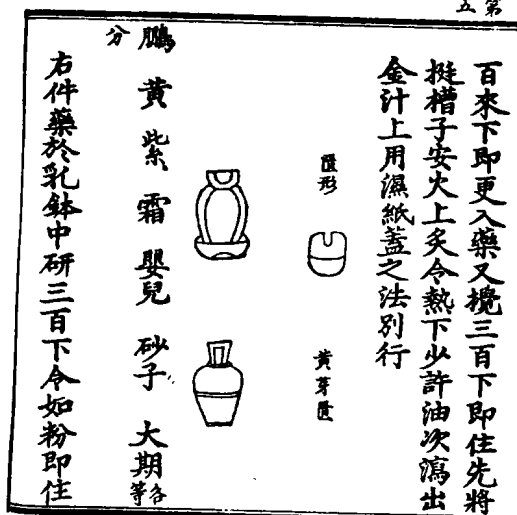 第
五
百來下即更入藥又攪三百下即住先將
挺槽子安火上炙令熱下少許油次瀉出
金汁上用濕紙蓋之法別行
匱形
黃芽匱
鵬黃 紫霜 嬰兒 砂子 大期各等
分
右件藥於乳鉢中研三百下令如粉即住